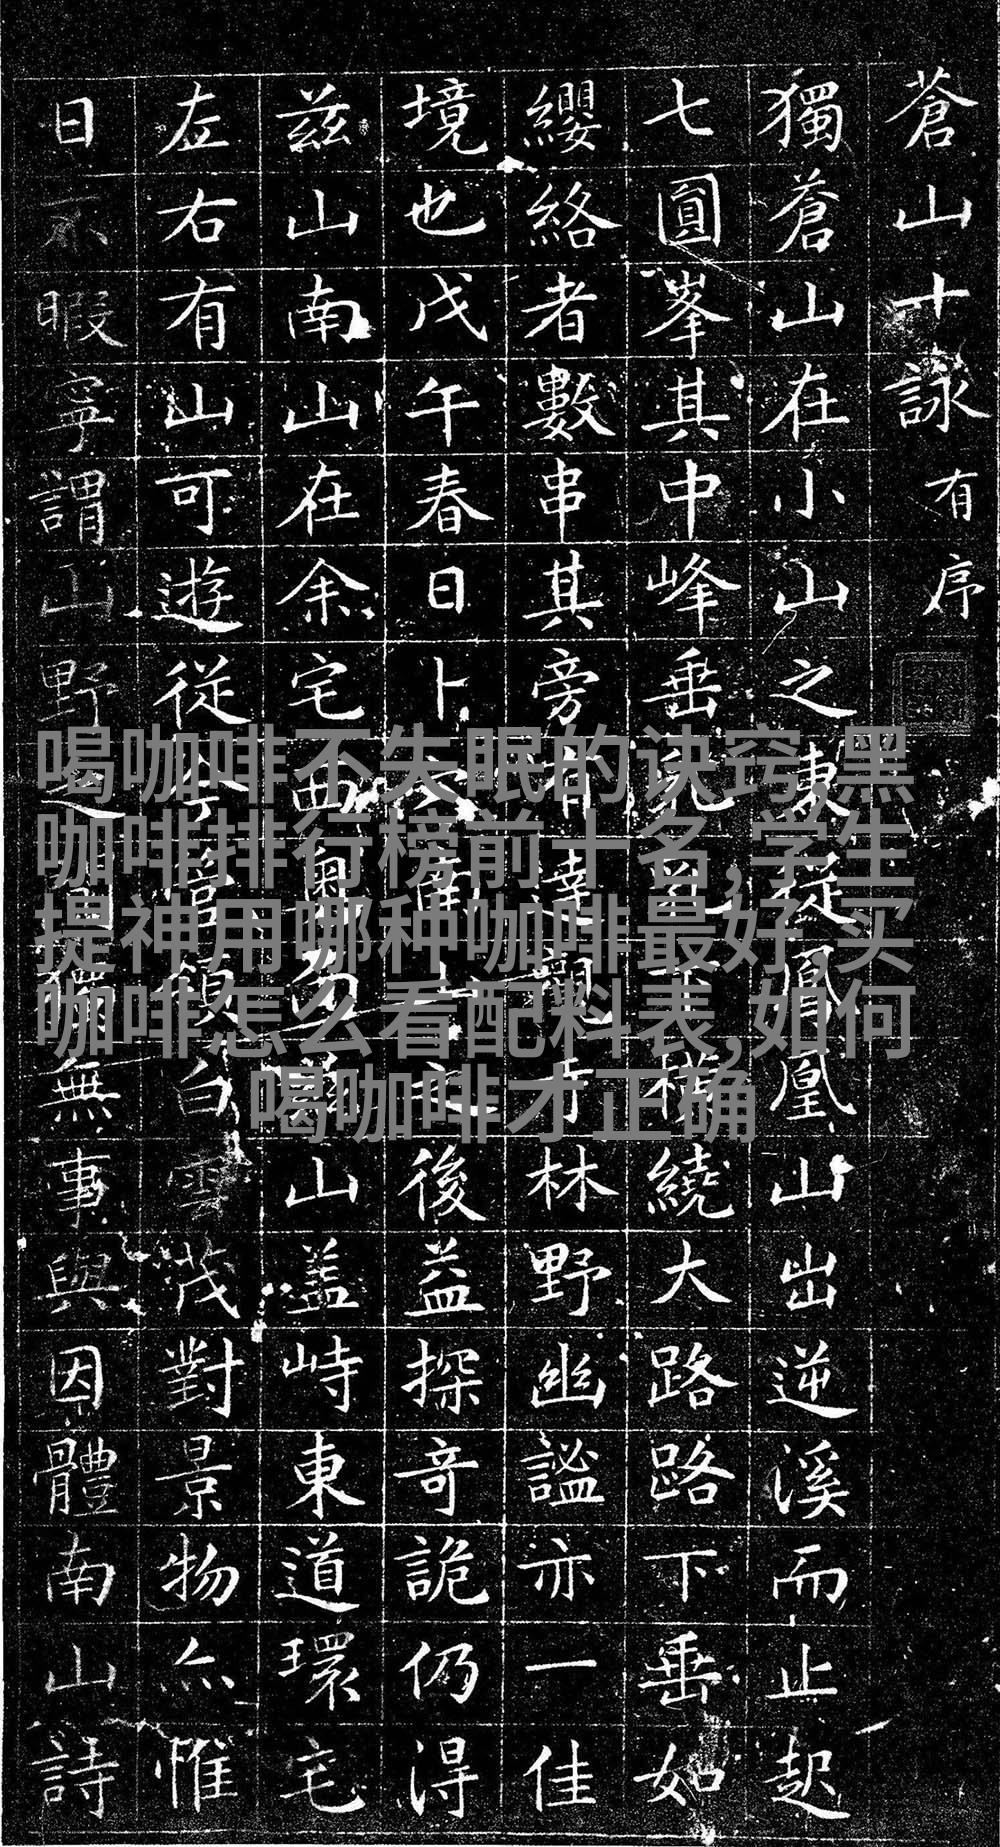 蒼山十詠 有序
獨蒼山在小山之東從鳳凰山出逆溪而止起
七圓峯其中峰垂橫繞大路路下垂如
纓絡者數串其旁有達觀寺林野幽謐亦一佳
境也戊午春日卜後益探奇詭仍得
茲山南山在余宅西山蓋峙東道環宅
左右有山可遊從領白雲茂對景物亦惟
日不暇寧謂山野之間獨無事與因體南山詩
喝咖啡不失眠的诀窍,黑
咖啡排行榜前十名,学生
提神用哪种咖啡最好,买
咖啡怎么看配料表,如何
喝咖啡才正确